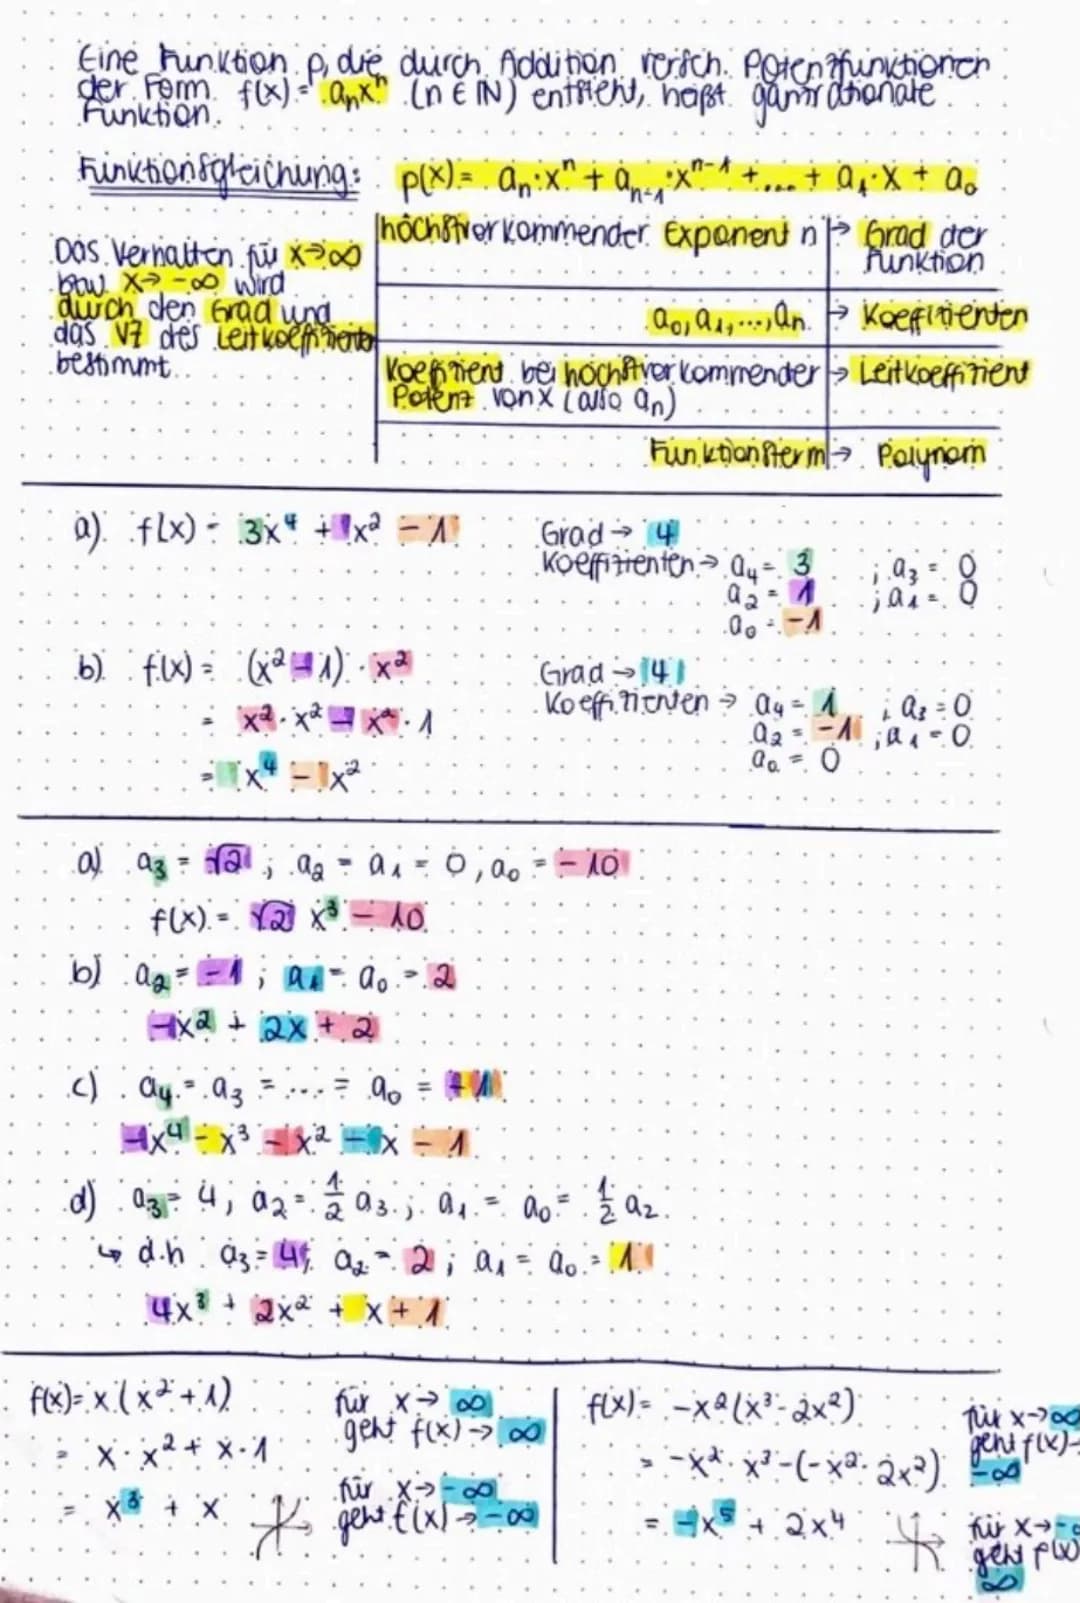 Eine Funktion p, die durch Addition versch. Potenzfunktionen
der Form f(x) = aₙxⁿ (n ∈ ℕ) entsteht, heißt ganzrationale
Funktion.
Funktionsgleichung: p(x) = aₙ·xⁿ + aₙ₋₁·xⁿ⁻¹ + ... + a₁·x + a₀
Das Verhalten für x→∞
bzw x→ -∞ wird
durch den Grad und
das VZ des Leitkoeffizienten
bestimmt.
höchstvorkommender Exponent n → Grad der
Funktion
a₀, a₁, ..., aₙ → Koeffizienten
Koeffizient bei höchstvorkommender → Leitkoeffizient
Potenz von x (also aₙ)
Funktionsterm → Polynom
a) f(x) = 3x⁴ + 1x² - 1
Grad → 4
Koeffizienten → a₄ = 3 ; a₃ = 0
a₂ = 1 ; a₁ = 0
a₀ = -1
b) f(x) = (x² - 1) · x²
= x² · x² - x² · 1
= 1x⁴ - 1x²
Grad → 4
Koeffizienten → a₄ = 1 ; a₃ = 0
a₂ = -1 ; a₁ = 0
a₀ = 0
a) a₃ = √2 ; a₂ = a₁ = 0, a₀ = -10
f(x) = √2 x³ - 10
b) a₂ = -1 ; a₁ = a₀ = 2
-x² + 2x + 2
c) a₄ = a₃ = ... = a₀ =
-x⁴ - x³ - x² - x - 1
d) a₃ = 4, a₂ = ½ a₃ ; a₁ = a₀ = ½ a₂
↳ d.h a₃ = 4; a₂ = 2 ; a₁ = a₀ = 1
4x³ + 2x² + x + 1
f(x) = x (x² + 1)
= x · x² + x · 1
= x³ + x
für x→ ∞
geht f(x) → ∞
für x→ -∞
geht f(x) → -∞
f(x) = -x² (x³ - 2x²)
= -x² · x³ - (-x² · 2x²)
= -x⁵ + 2x⁴
für x→∞
geht f(x)→
-∞
für x→ -
geht f(x)
∞